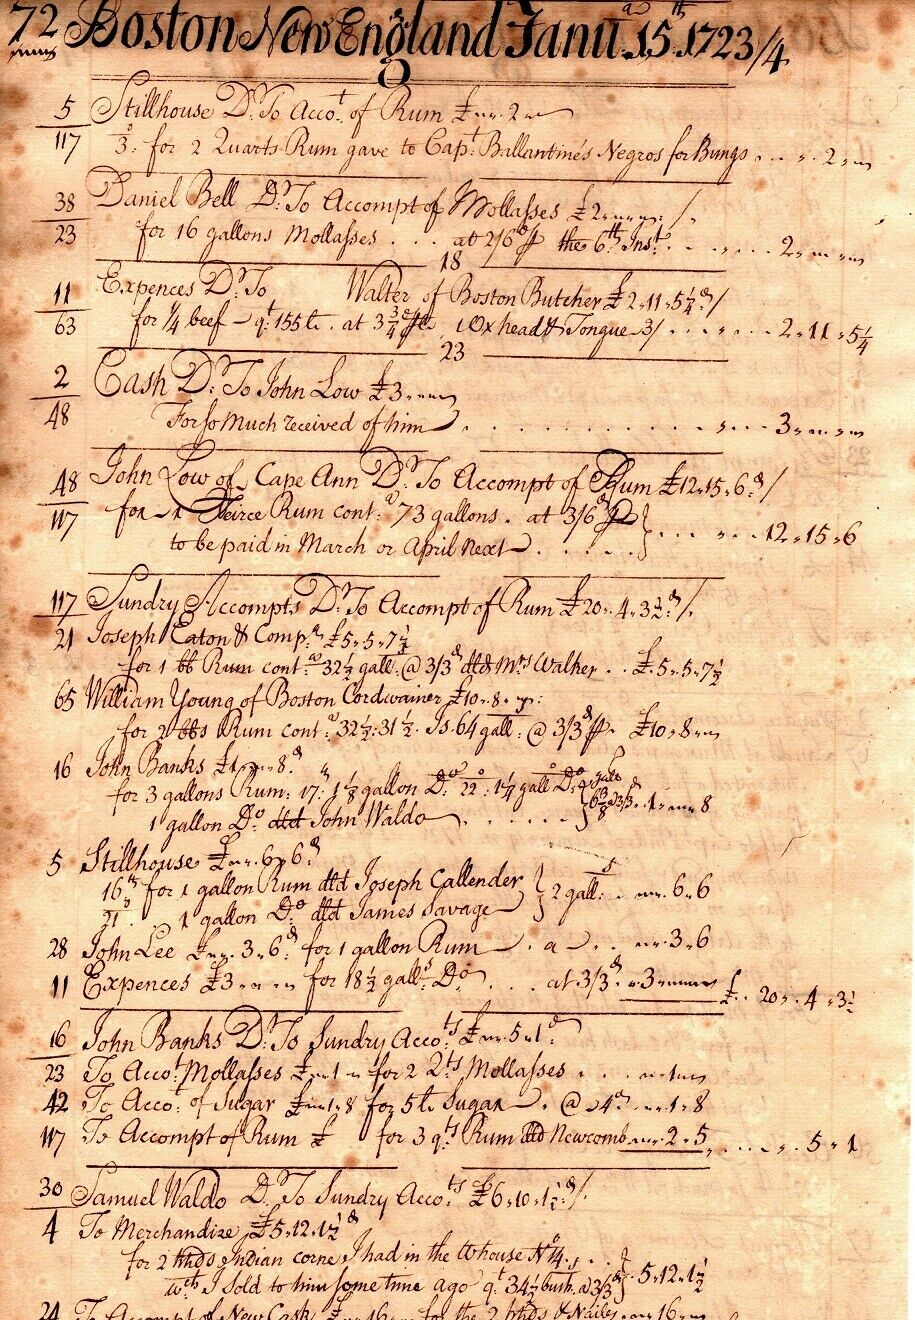 72 Boston New England Janu.ᵃ 15ᵗʰ 1723/4
5 Stillhouse Dʳ To Accoᵗ. of Rum £„„2„
117 3: for 2 Quarts Rum gave to Capᵗ: Ballantine's Negros for Bungs . . . . „2„
38 Daniel Bell Dʳ To Accompt of Mollasses £2„„:/.
23 for 16 gallons Mollasses . . . at 2/6ᵈ ⅌ the 6ᵗʰ Insᵗ: . . . . 2„„
18
11 Expences Dʳ To Walter of Boston Butcher £2„11„5¼ᵈ/
63 for ¼ beef qᵗ: 155 at 3¾ 1 Ox head & Tongue 3/ . . . . 2„11„5¼
23
2 Cash Dʳ To John Low £3„„
48 For so Much received of him . . . . . . . . . . 3„„
48 John Low of Cape Ann Dʳ To Accompt of Rum £12„15„6ᵈ/
117 for 1 Teirce Rum contᵈ: 73 gallons. at 3/6ᵈ ⅌ } . . . . 12„15„6
to be paid in March or April Next . . . . .
117 Sundry Accompts Dʳ To Accompt of Rum £20„4„3½ᵈ/.
21 Joseph Eaton & Compᵃ £5„5„7½
for 1 bb Rum cont: 32½ gall. @ 3/3ᵈ dld Mʳˢ Walker . . £5„5„7½
65 William Young of Boston Cordwainer £10„8„
for 2 bbs Rum contᵈ: 32½:31½. Is. 64 gall: @ 3/3ᵈ ⅌. £10„8„
16 John Banks £1„„8ᵈ.
for 3 gallons Rum: 17: 1⅛ gallon Dᵒ 22: 1¼ gall Dᵒ
1 gallon Dᵒ dld John Waldo . . . . . 1„„8
5 Stillhouse £„„6„6ᵈ
16ᵗʰ for 1 gallon Rum dld Joseph Callender } 2 gall: . . „„6„6
21: 1 gallon Dᵒ dld James Savage
28 John Lee £„„3„6ᵈ for 1 gallon Rum . . . „„3„6
11 Expences £3„„ for 18½ gallˢ Dᵒ . . . at 3/3ᵈ . „3„„ £ . 20„4„3½
16 John Banks Dʳ To Sundry Accoᵗˢ £„„5„1ᵈ:
23 To Accoᵗ: Mollasses £„„1„ for 2 Qᵗˢ Mollasses . . . „„1„
42 To Accoᵗ: of Sugar £„„1„8 for 5 Sugar . @ 4ᵈ . „„1„8
117 To Accompt of Rum £ for 3 qᵗˢ Rum dld Newcomb „„2„5 . . . . „5„1
30 Samuel Waldo Dʳ To Sundry Accoᵗˢ £6„10„1½ᵈ/.
4 To Merchandize £5„12„1½ᵈ
for 2 hhds Indian corne I had in the Whouse Nᵒ 4. . }
wᶜʰ I sold to him some time ago qᵗ 34½ bush. @ 3/3ᵈ } 5„12„1½
24 To Accompt of New Cask £„„16„ for the 2 hhds & Nailes „„16„